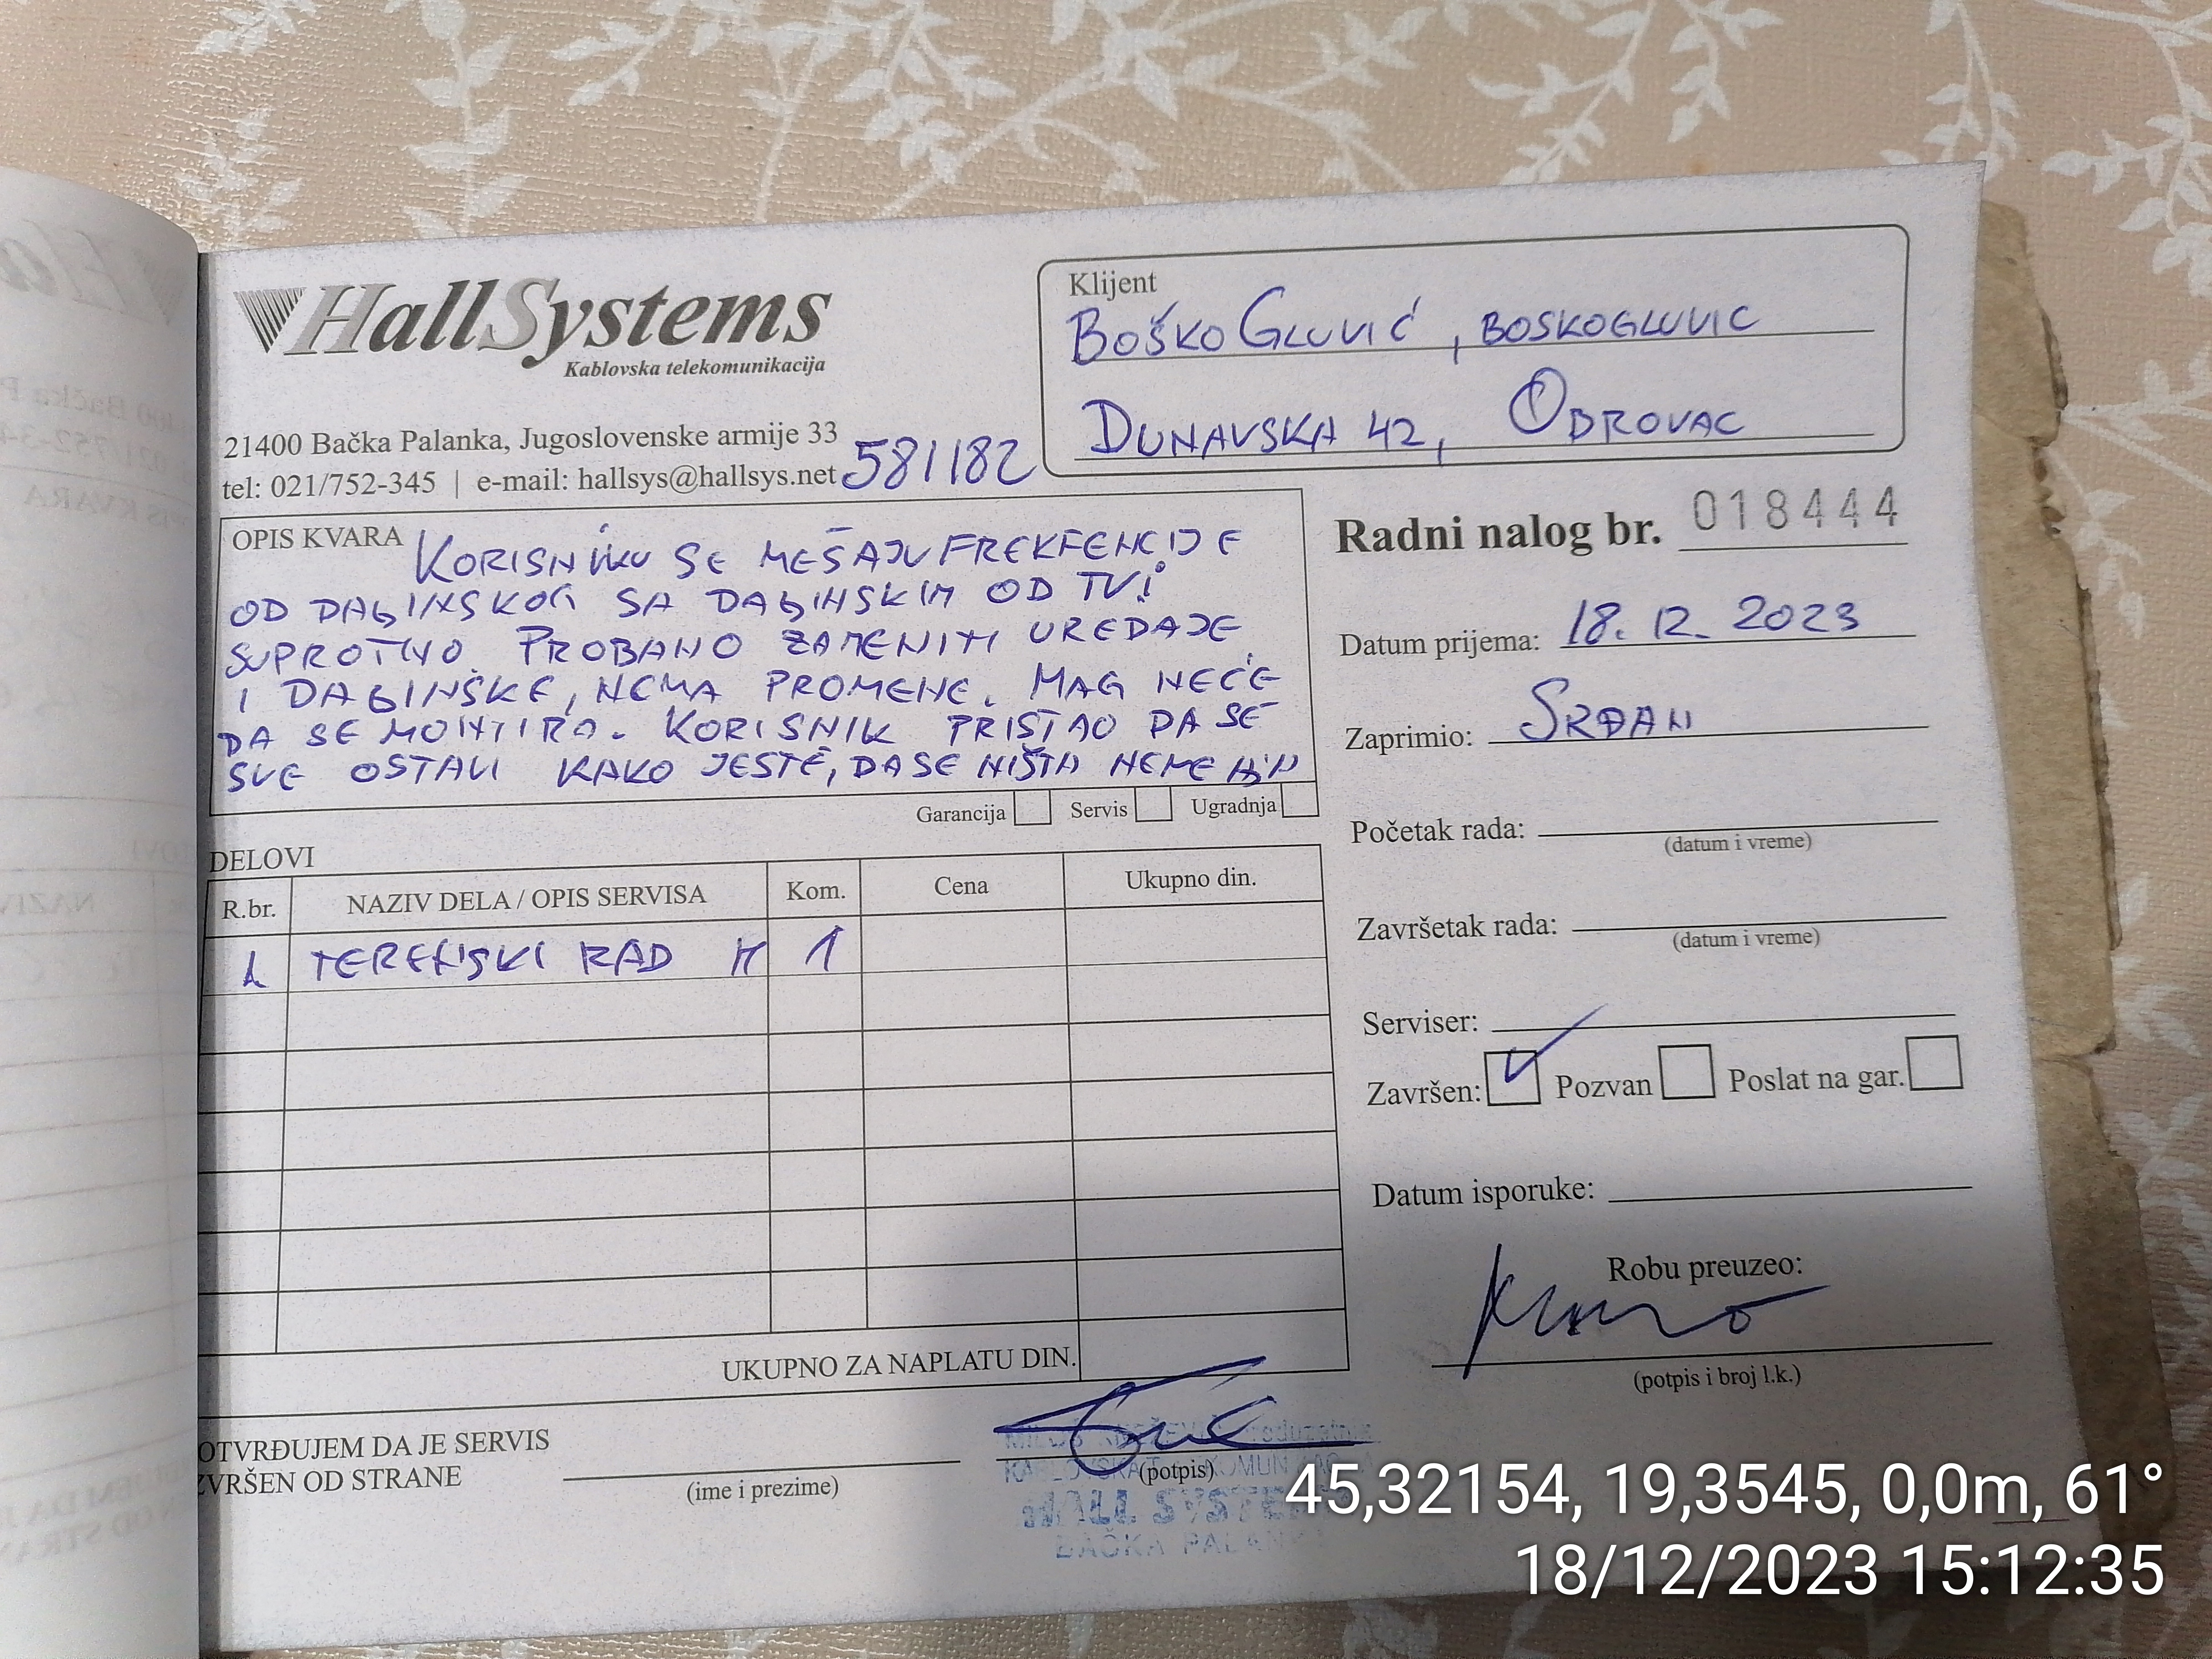 HallSystems
Kablovska telekomunikacija
21400 Bačka Palanka, Jugoslovenske armije 33
tel: 021/752-345 | e-mail: hallsys@hallsys.net
581182
Klijent
BOŠKO GLUVIĆ, BOSKOGLUVIC
DUNAVSKA 42, OBROVAC
OPIS KVARA
KORISNIKU SE MEŠAJU FREKFENCIJE
OD DALJINSKOG SA DALJINSKIM OD TV I
SUPROTNO. PROBANO ZAMENITI UREĐAJE
I DALJINSKE, NEMA PROMENE. MAG NEĆE
DA SE MONTIRA. KORISNIK PRISTAO DA SE
SVE OSTAVI KAKO JESTE, DA SE NIŠTA NE
Garancija Servis Ugradnja
Radni nalog br. 018444
Datum prijema: 18.12.2023
Zaprimio: SRĐAN
Početak rada:
(datum i vreme)
Završetak rada:
(datum i vreme)
Serviser:
Završen: ✓ Pozvan Poslat na gar.
Datum isporuke:
Robu preuzeo:
(potpis i broj l.k.)
DELOVI
R.br. NAZIV DELA / OPIS SERVISA Kom. Cena Ukupno din.
1 TERENSKI RAD M 1
UKUPNO ZA NAPLATU DIN.
OTVRĐUJEM DA JE SERVIS
ZVRŠEN OD STRANE
(ime i prezime)
(potpis)
HALL SYSTEM
BAČKA PALANKA
45,32154, 19,3545, 0,0m, 61°
18/12/2023 15:12:35